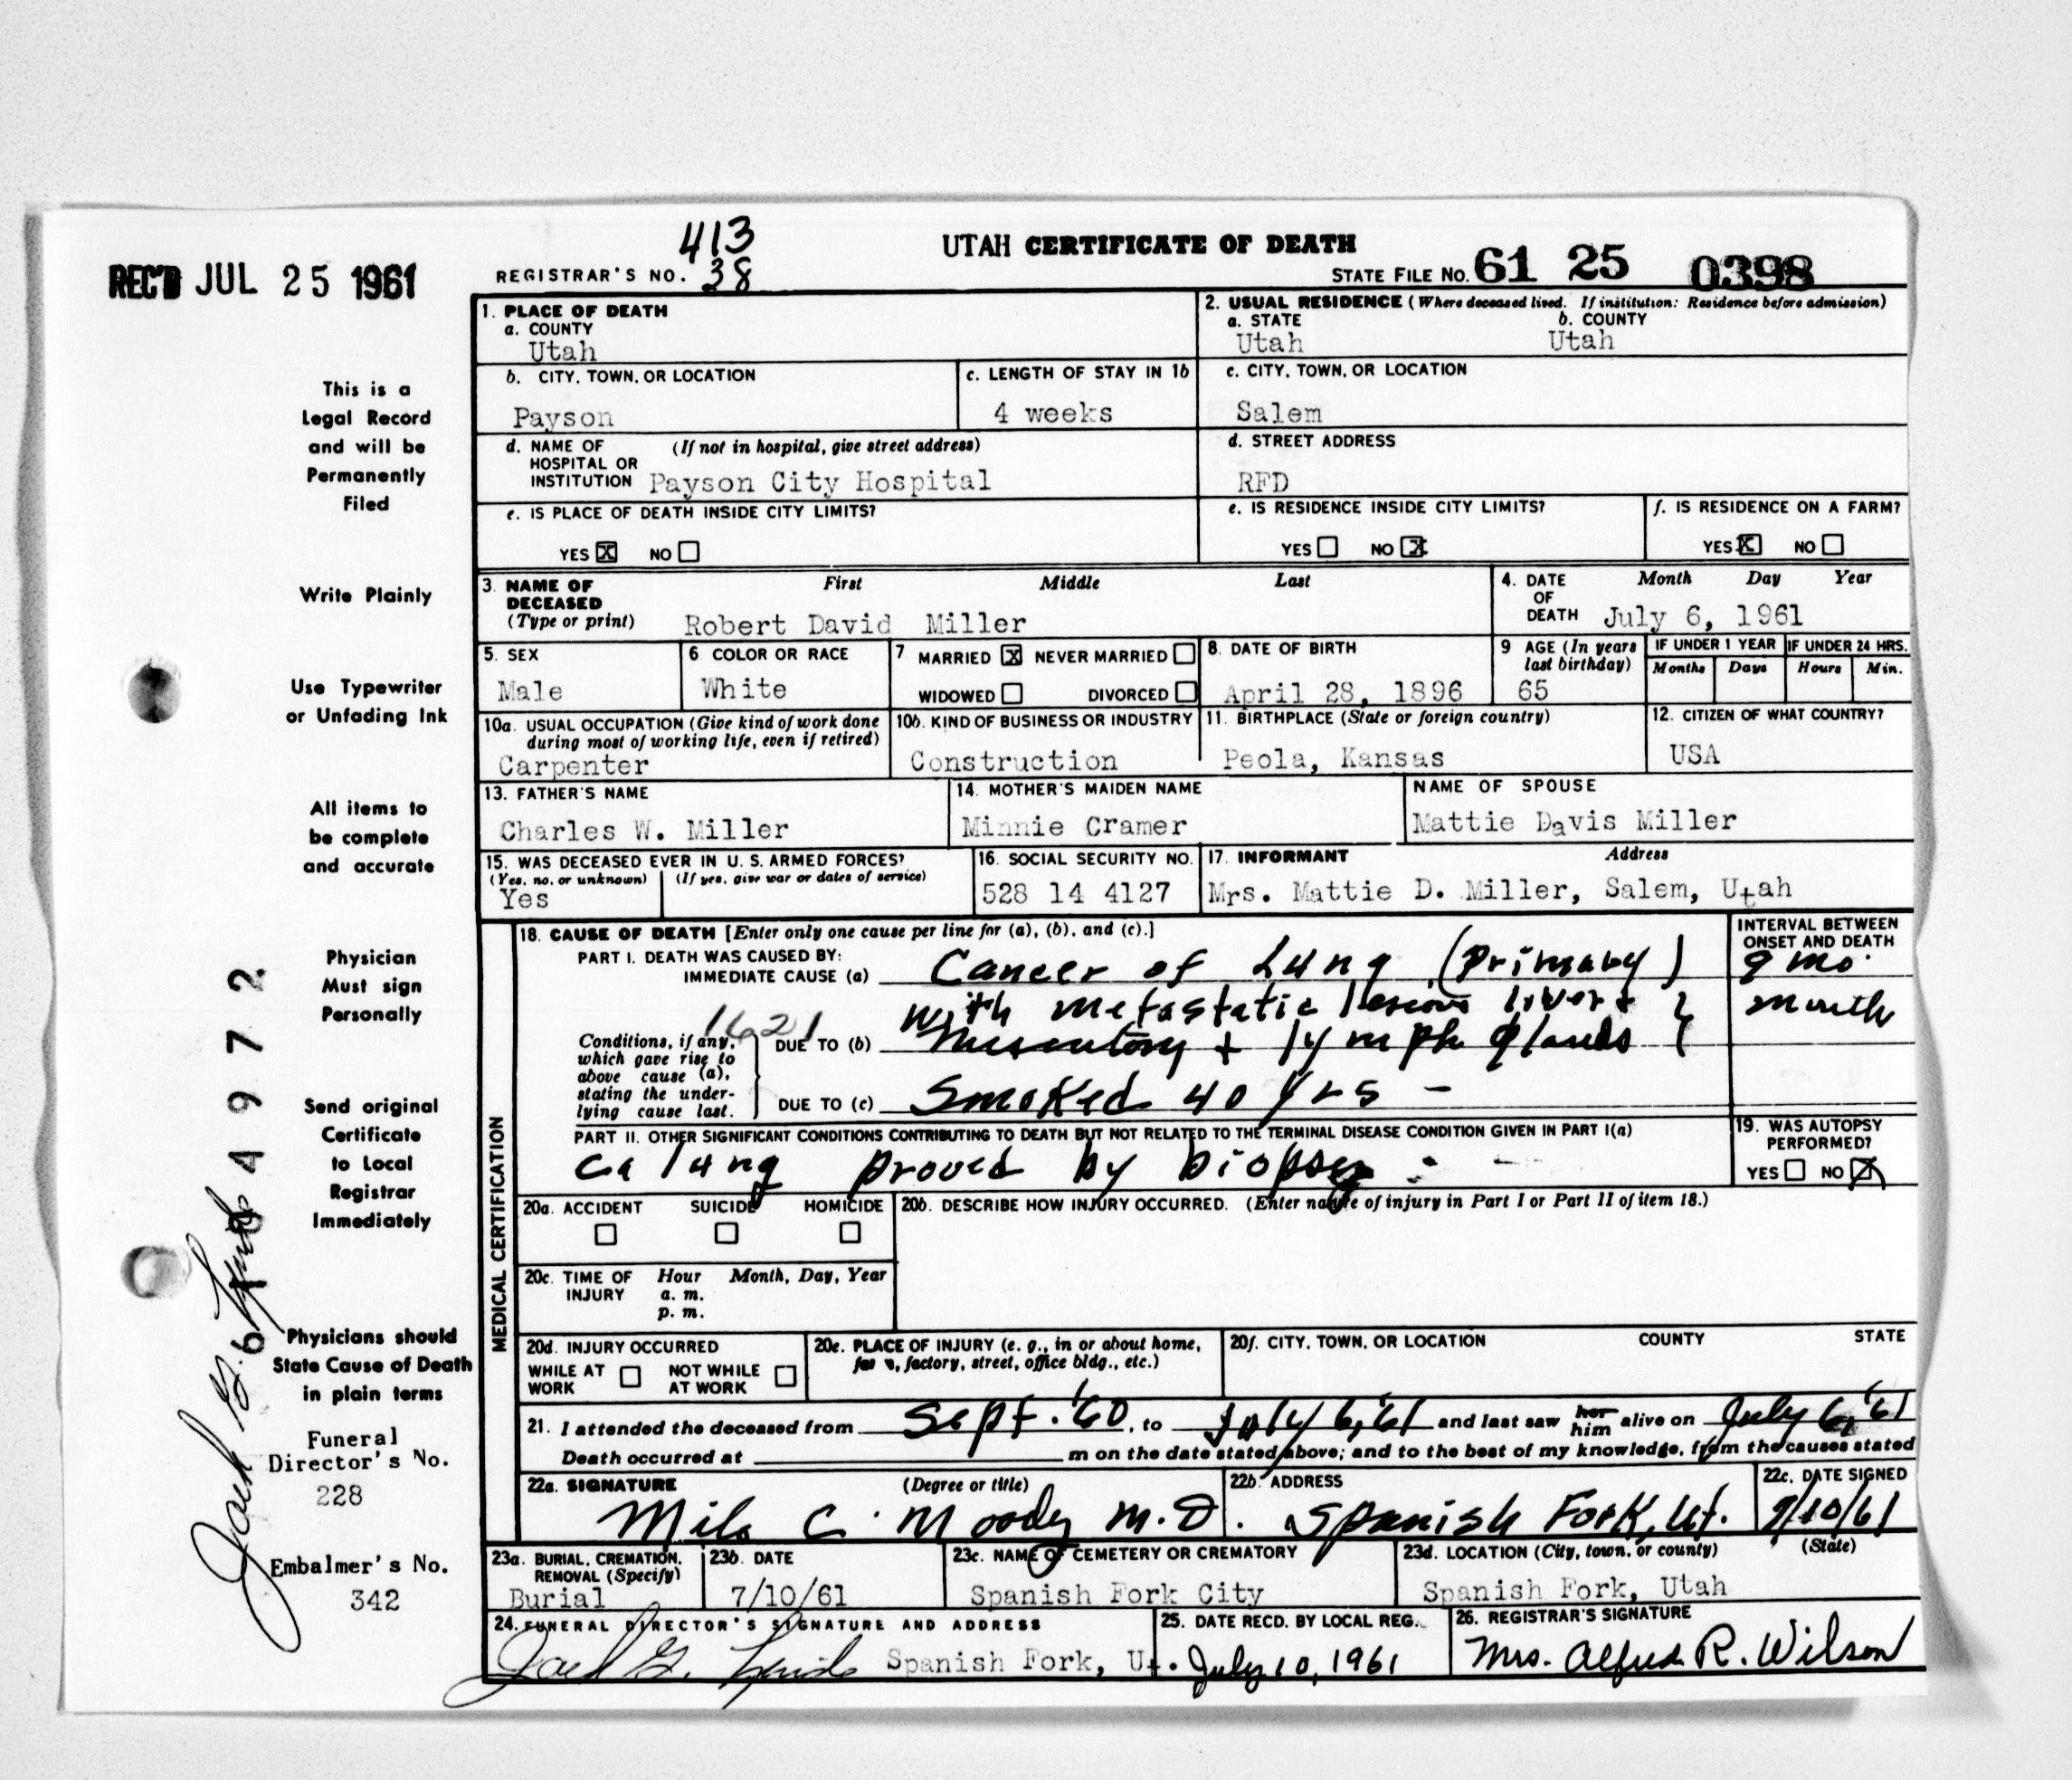 413
REC'D JUL 25 1961
UTAH CERTIFICATE OF DEATH
REGISTRAR'S NO. 38
STATE FILE No. 61 25 0398
1. PLACE OF DEATH
a. COUNTY
Utah
2. USUAL RESIDENCE (Where deceased lived. If institution: Residence before admission)
a. STATE b. COUNTY
Utah Utah
b. CITY, TOWN, OR LOCATION
Payson
c. LENGTH OF STAY IN 1b
4 weeks
c. CITY, TOWN, OR LOCATION
Salem
d. NAME OF (If not in hospital, give street address)
HOSPITAL OR
INSTITUTION Payson City Hospital
d. STREET ADDRESS
RFD
e. IS PLACE OF DEATH INSIDE CITY LIMITS?
YES X NO
e. IS RESIDENCE INSIDE CITY LIMITS?
YES NO X
f. IS RESIDENCE ON A FARM?
YES X NO
3. NAME OF DECEASED First Middle Last
(Type or print) Robert David Miller
4. DATE OF DEATH Month Day Year
July 6, 1961
5. SEX
Male
6. COLOR OR RACE
White
7 MARRIED X NEVER MARRIED
WIDOWED DIVORCED
8. DATE OF BIRTH
April 28, 1896
9 AGE (In years last birthday)
65
IF UNDER 1 YEAR IF UNDER 24 HRS.
Months Days Hours Min.
10a. USUAL OCCUPATION (Give kind of work done
during most of working life, even if retired)
Carpenter
10b. KIND OF BUSINESS OR INDUSTRY
Construction
11. BIRTHPLACE (State or foreign country)
Peola, Kansas
12. CITIZEN OF WHAT COUNTRY?
USA
13. FATHER'S NAME
Charles W. Miller
14. MOTHER'S MAIDEN NAME
Minnie Cramer
NAME OF SPOUSE
Mattie Davis Miller
15. WAS DECEASED EVER IN U. S. ARMED FORCES?
(Yes, no, or unknown) (If yes, give war or dates of service)
Yes
16. SOCIAL SECURITY NO.
528 14 4127
17. INFORMANT Address
Mrs. Mattie D. Miller, Salem, Utah
MEDICAL CERTIFICATION
18. CAUSE OF DEATH [Enter only one cause per line for (a), (b), and (c).]
INTERVAL BETWEEN
ONSET AND DEATH
PART I. DEATH WAS CAUSED BY:
IMMEDIATE CAUSE (a) Cancer of Lung (Primary) 9 mo.
with metastatic lesions liver + month
1621
Conditions, if any,
which gave rise to
above cause (a),
stating the under-
lying cause last.
DUE TO (b) Mesentery + lymph glands
DUE TO (c) Smoked 40 yrs -
PART II. OTHER SIGNIFICANT CONDITIONS CONTRIBUTING TO DEATH BUT NOT RELATED TO THE TERMINAL DISEASE CONDITION GIVEN IN PART I(a)
Ca lung proved by biopsy
19. WAS AUTOPSY
PERFORMED?
YES NO X
20a. ACCIDENT SUICIDE HOMICIDE
20b. DESCRIBE HOW INJURY OCCURRED. (Enter nature of injury in Part I or Part II of item 18.)
20c. TIME OF INJURY Hour Month, Day, Year
a. m.
p. m.
20d. INJURY OCCURRED
WHILE AT WORK NOT WHILE AT WORK
20e. PLACE OF INJURY (e. g., in or about home,
factory, street, office bldg., etc.)
20f. CITY, TOWN, OR LOCATION COUNTY STATE
21. I attended the deceased from Sept. '60, to July 6, '61 and last saw her him alive on July 6, '61
Death occurred at m on the date stated above; and to the best of my knowledge, from the causes stated
22a. SIGNATURE (Degree or title)
Milo C. Moody M.D.
22b. ADDRESS
Spanish Fork, Ut.
22c. DATE SIGNED
7/10/61
23a. BURIAL, CREMATION,
REMOVAL (Specify)
Burial
23b. DATE
7/10/61
23c. NAME OF CEMETERY OR CREMATORY
Spanish Fork City
23d. LOCATION (City, town, or county) (State)
Spanish Fork, Utah
24. FUNERAL DIRECTOR'S SIGNATURE AND ADDRESS
Spanish Fork, Ut.
25. DATE RECD. BY LOCAL REG.
July 10, 1961
26. REGISTRAR'S SIGNATURE
Mrs. Alfred R. Wilson
This is a
Legal Record
and will be
Permanently
Filed
Write Plainly
Use Typewriter
or Unfading Ink
All items to
be complete
and accurate
Physician
Must sign
Personally
Send original
Certificate
to Local
Registrar
Immediately
Physicians should
State Cause of Death
in plain terms
Funeral
Director's No.
228
Embalmer's No.
342